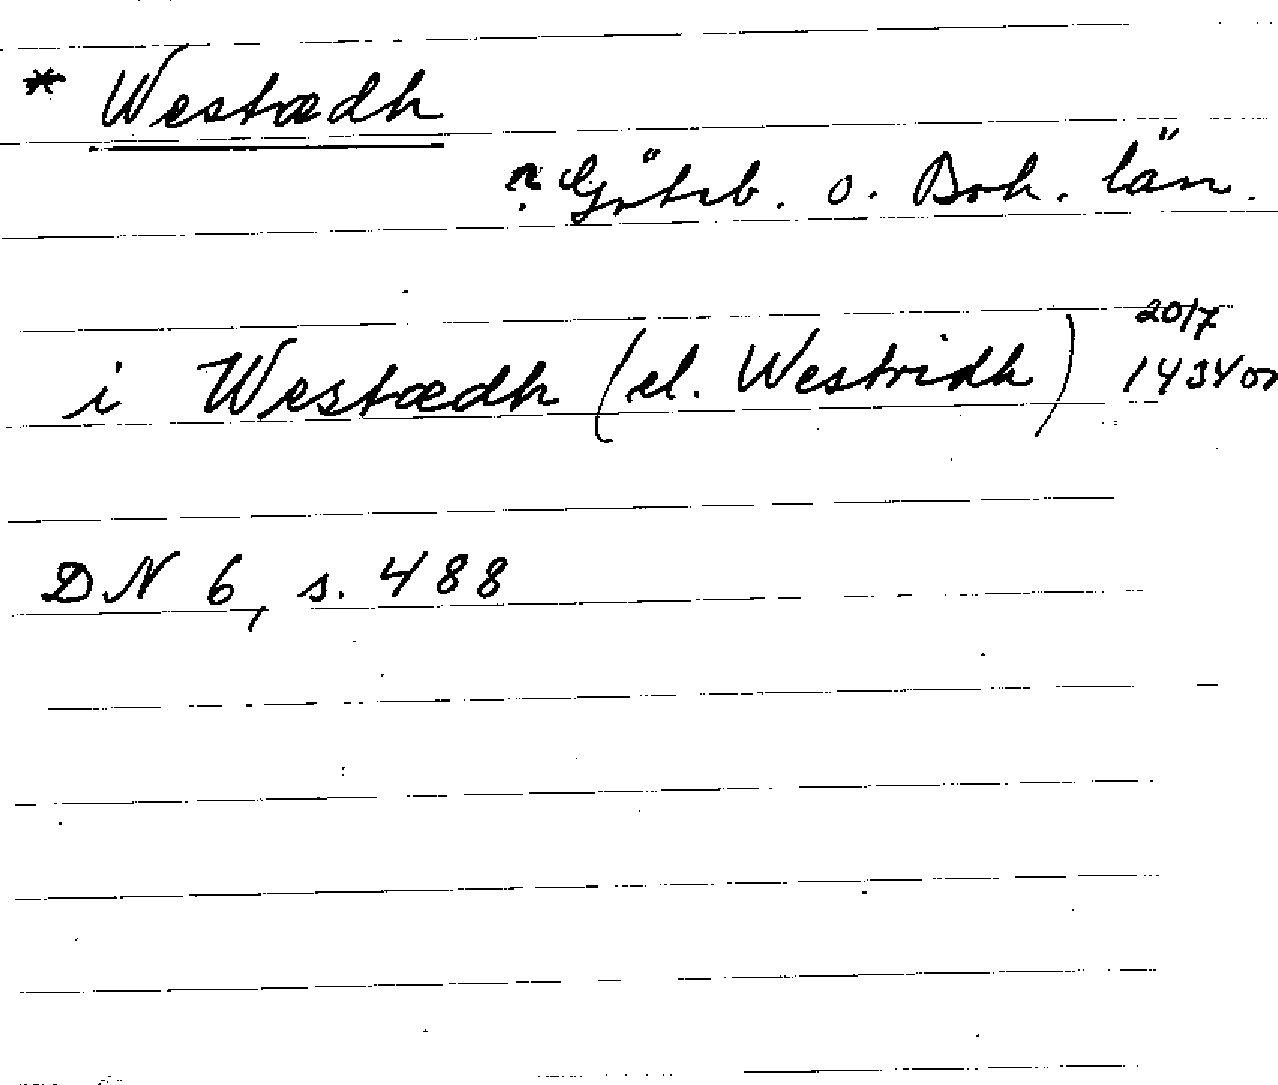 * Westædh
? Göteb. o. Boh. län.
i Westædh (el. Westridh) 20/7
1434 or
DN 6, s. 488